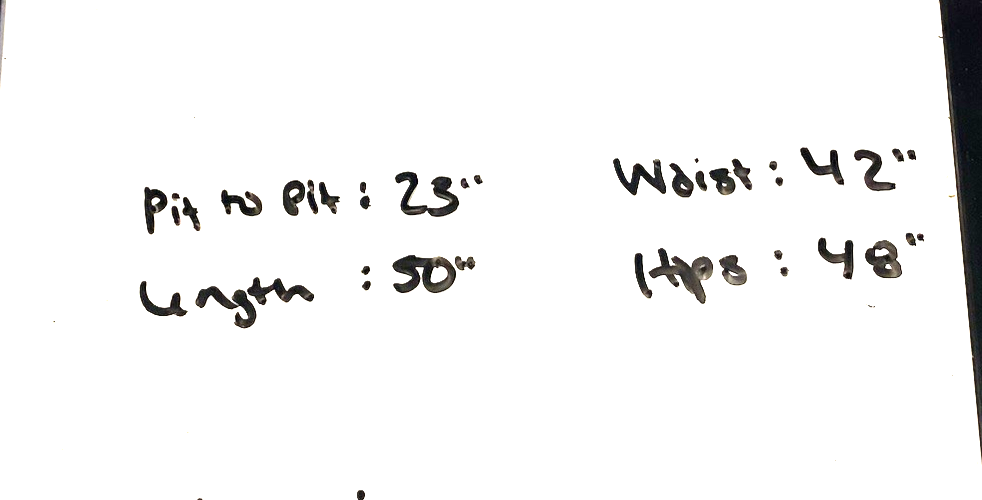 Pit to Pit : 23"
Length : 50"
Waist : 42"
Hips : 48"